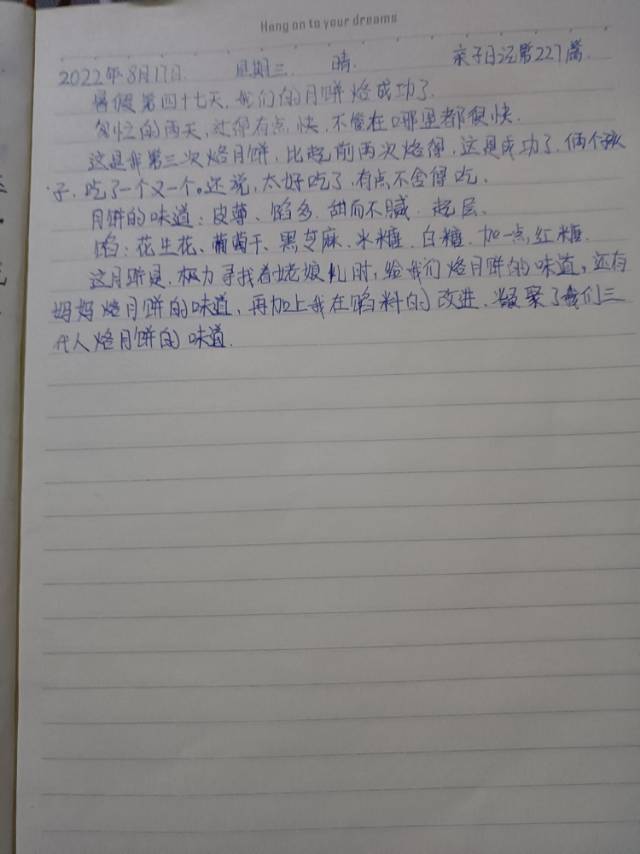 Hang on to your dreams
2022年8月17日 星期三 晴 亲子日记第227篇
暑假第四十七天,我们的月饼烙成功了.
匆忙的两天,过得有点快,不管在哪里都很快.
这是我第三次烙月饼,比起前两次烙得,这是成功了,俩个孩
子,吃了一个又一个。还说,太好吃了,有点不舍得吃。
月饼的味道:皮薄、馅多、甜而不腻、起层、
馅:花生花、葡萄干、黑芝麻、米糖、白糖、加一点红糖.
这月饼是,极力寻找着姥娘儿时,给我们烙月饼的味道,还有
妈妈烙月饼的味道,再加上我在馅料的改进,凝聚了我们三
代人烙月饼的味道.